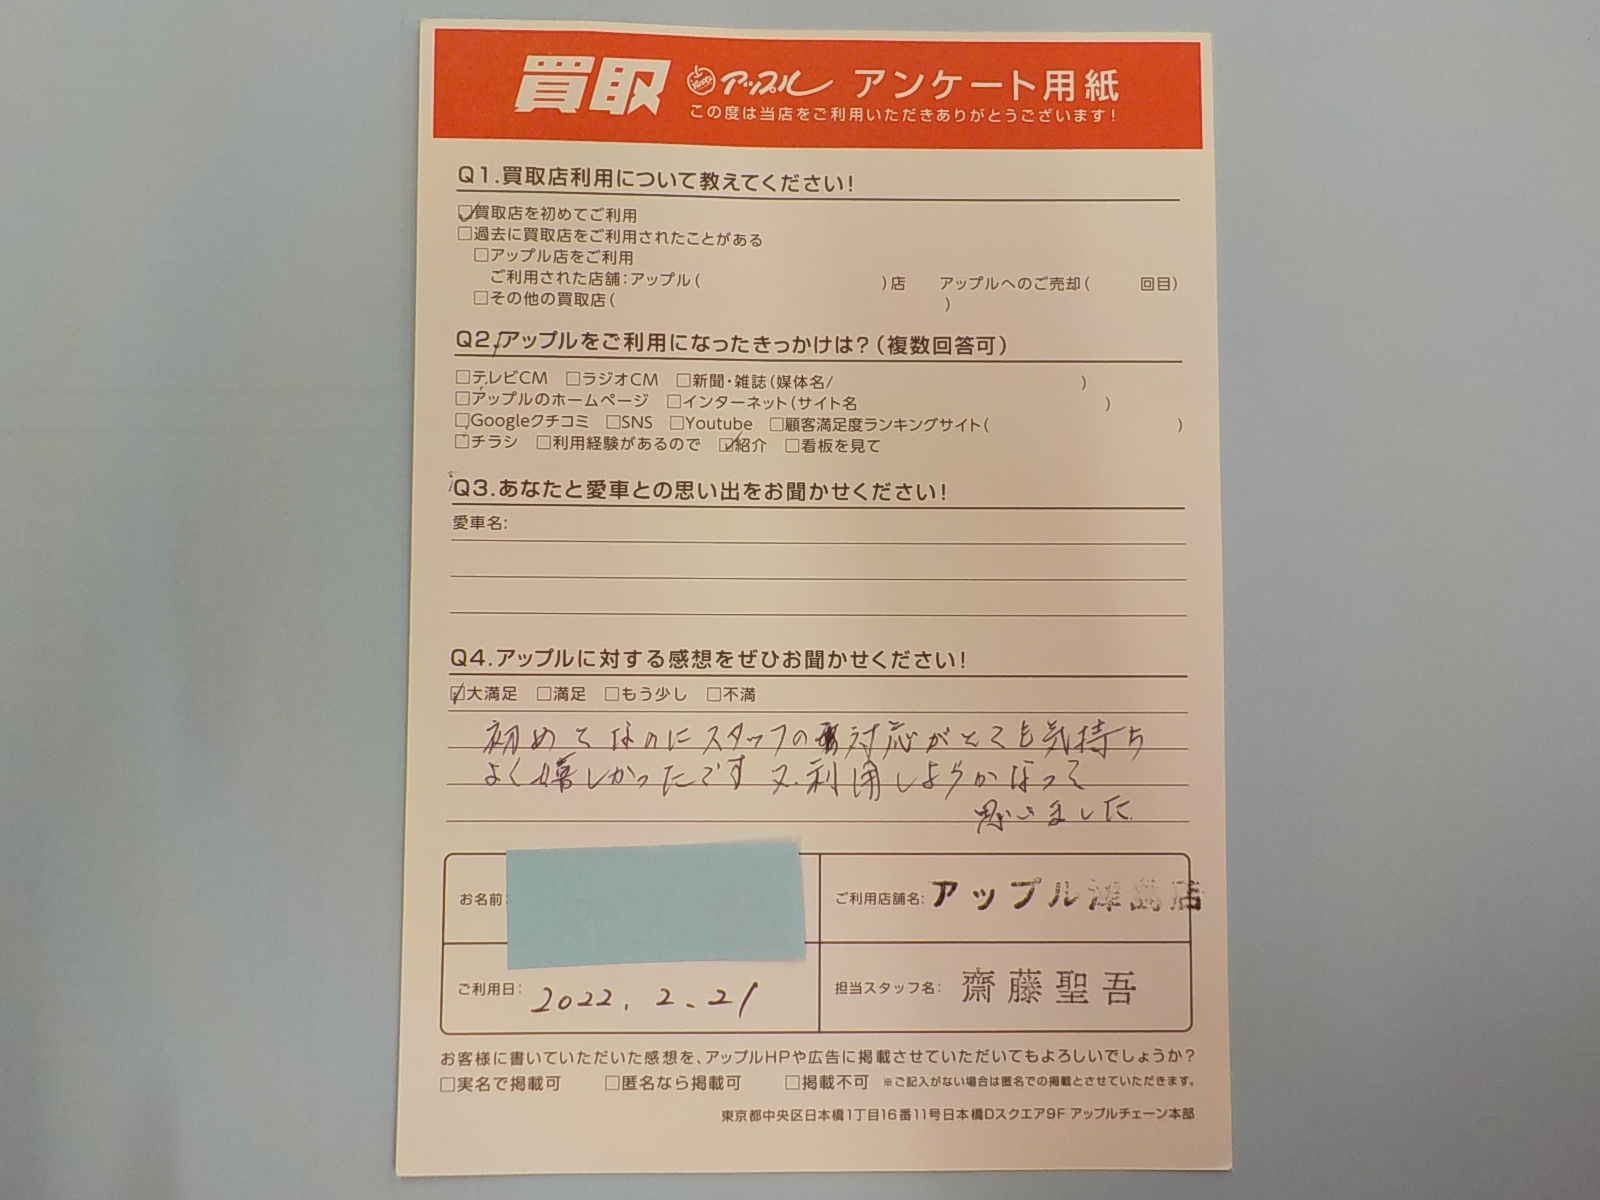 買取 アップル アンケート用紙
この度は当店をご利用いただきありがとうございます!
Q1.買取店利用について教えてください!
☑買取店を初めてご利用
□過去に買取店をご利用されたことがある
□アップル店をご利用
ご利用された店舗:アップル( )店 アップルへのご売却( 回目)
□その他の買取店( )
Q2.アップルをご利用になったきっかけは?(複数回答可)
□テレビCM □ラジオCM □新聞・雑誌(媒体名/ )
□アップルのホームページ □インターネット(サイト名 )
□Googleクチコミ □SNS □Youtube □顧客満足度ランキングサイト( )
□チラシ □利用経験があるので ☑紹介 □看板を見て
Q3.あなたと愛車との思い出をお聞かせください!
愛車名:
Q4.アップルに対する感想をぜひお聞かせください!
☑大満足 □満足 □もう少し □不満
初めてなのにスタッフの対応がとても気持ち
よく嬉しかったです 又、利用しようかなって
思いました
お名前:
ご利用店舗名: アップル津島店
ご利用日: 2022. 2. 21
担当スタッフ名: 齋藤聖吾
お客様に書いていただいた感想を、アップルHPや広告に掲載させていただいてもよろしいでしょうか?
□実名で掲載可 □匿名なら掲載可 □掲載不可 ※ご記入がない場合は匿名での掲載とさせていただきます。
東京都中央区日本橋1丁目16番11号日本橋Dスクエア9F アップルチェーン本部